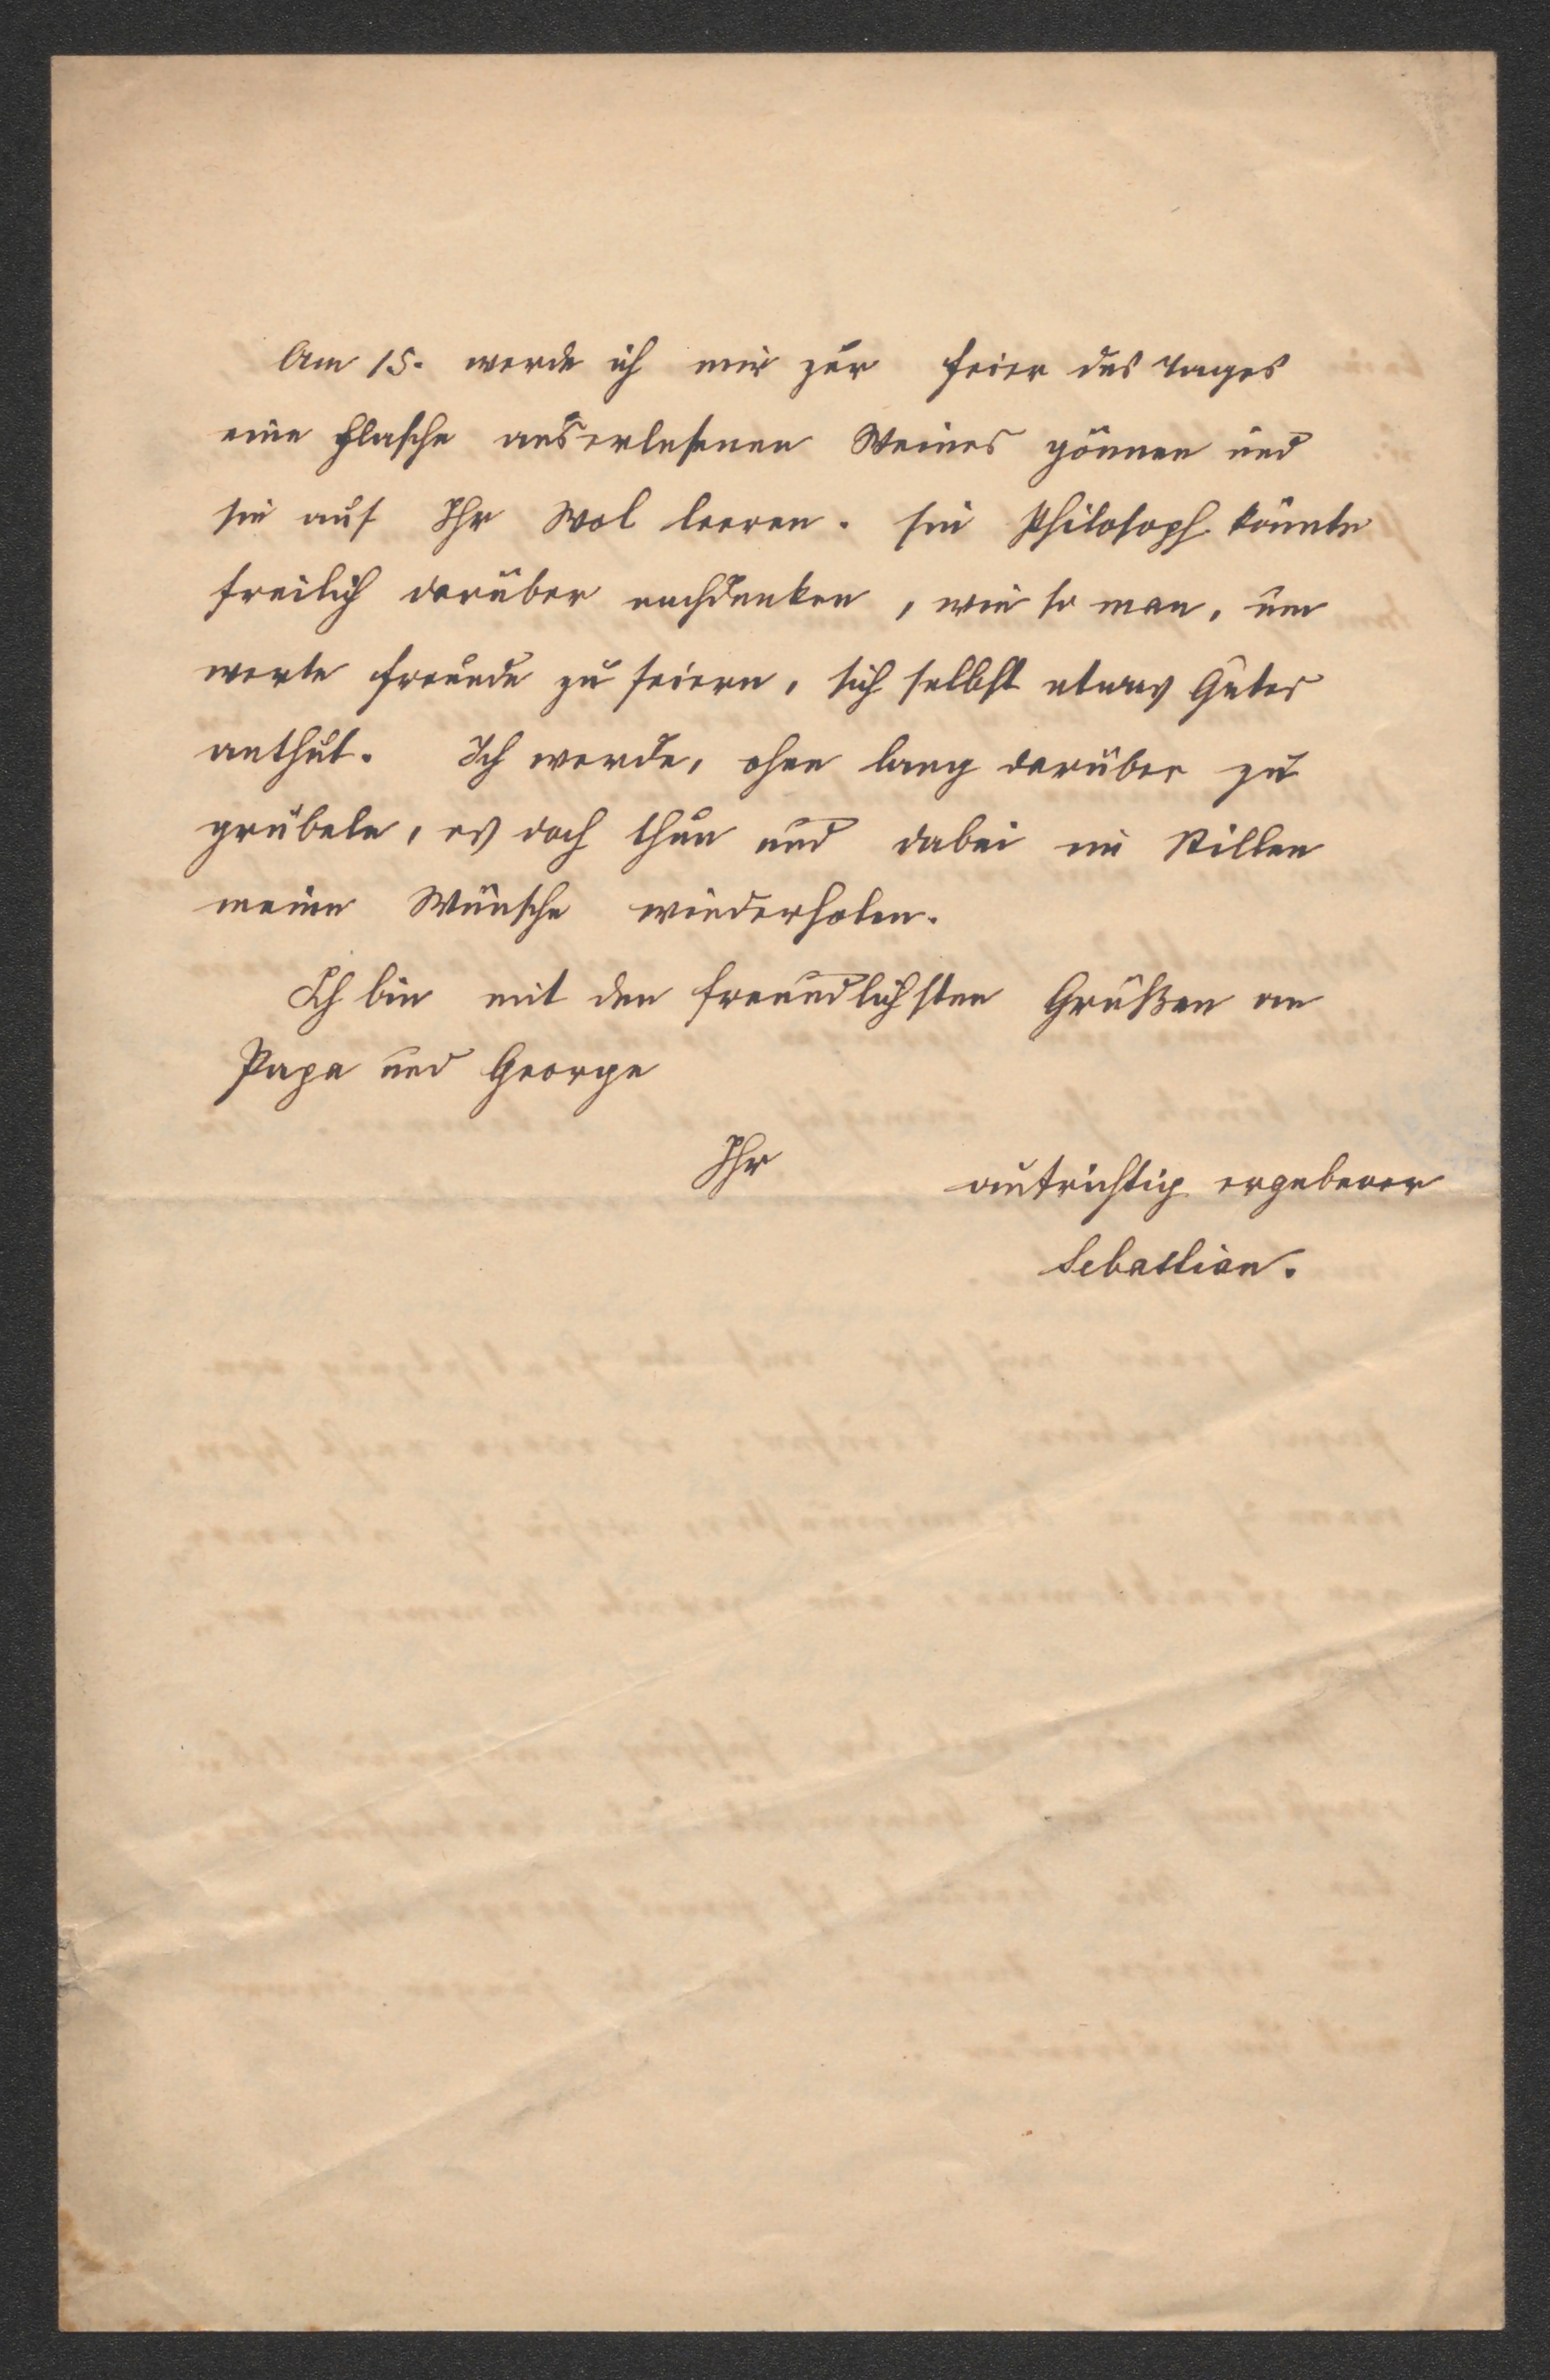 Am 15. werde ich mir zur Feier des Tages
eine Flasche auserlesenen Weines gönnen und
sie auf Ihr Wol leeren. Ein Philosoph könnte
freilich darüber nachdenken, wie so man, um
werte Freunde zu feiern, sich selbst etwas Gutes
anthut. Ich werde, ohne lang darüber zu
grübeln, es doch thun und dabei im Stillen
meine Wünsche wiederholen.
Ich bin mit den freundlichsten Grüßen an
Papa und George
Ihr aufrichtig ergebener
Sebastian.